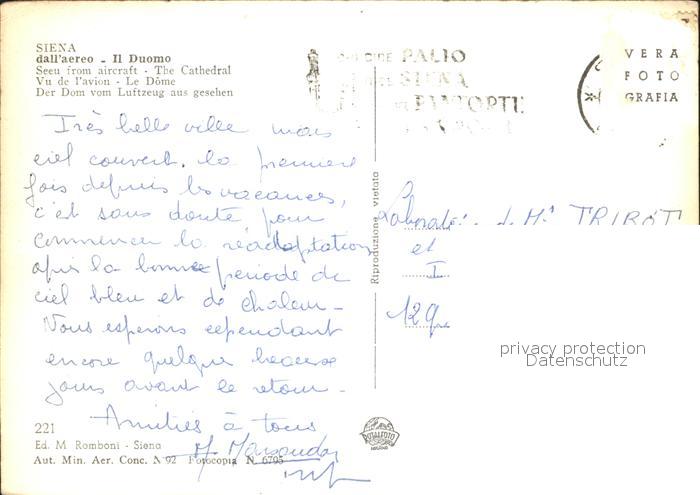 SIENA
dall'aereo - Il Duomo
Seeu from aircraft - The Cathedral
Vu de l'avion - Le Dôme
Der Dom vom Luftzeug aus gesehen
PALIO
SIENA
VERA
FOTO
GRAFIA
Très belle ville mais
ciel couvert. la première
fois depuis les vacances,
c'est sans doute pour
commencer la réadaptation
après la bonne période de
ciel bleu et de chaleur -
Nous espérons cependant
encore quelques beaux
jours avant le retour -
Amitiés à tous
Riproduzione vietata
et
I
129
privacy protection
Datenschutz
221
Ed. M Romboni - Siena
Aut. Min. Aer. Conc. N 92 Fotocopia N 6795